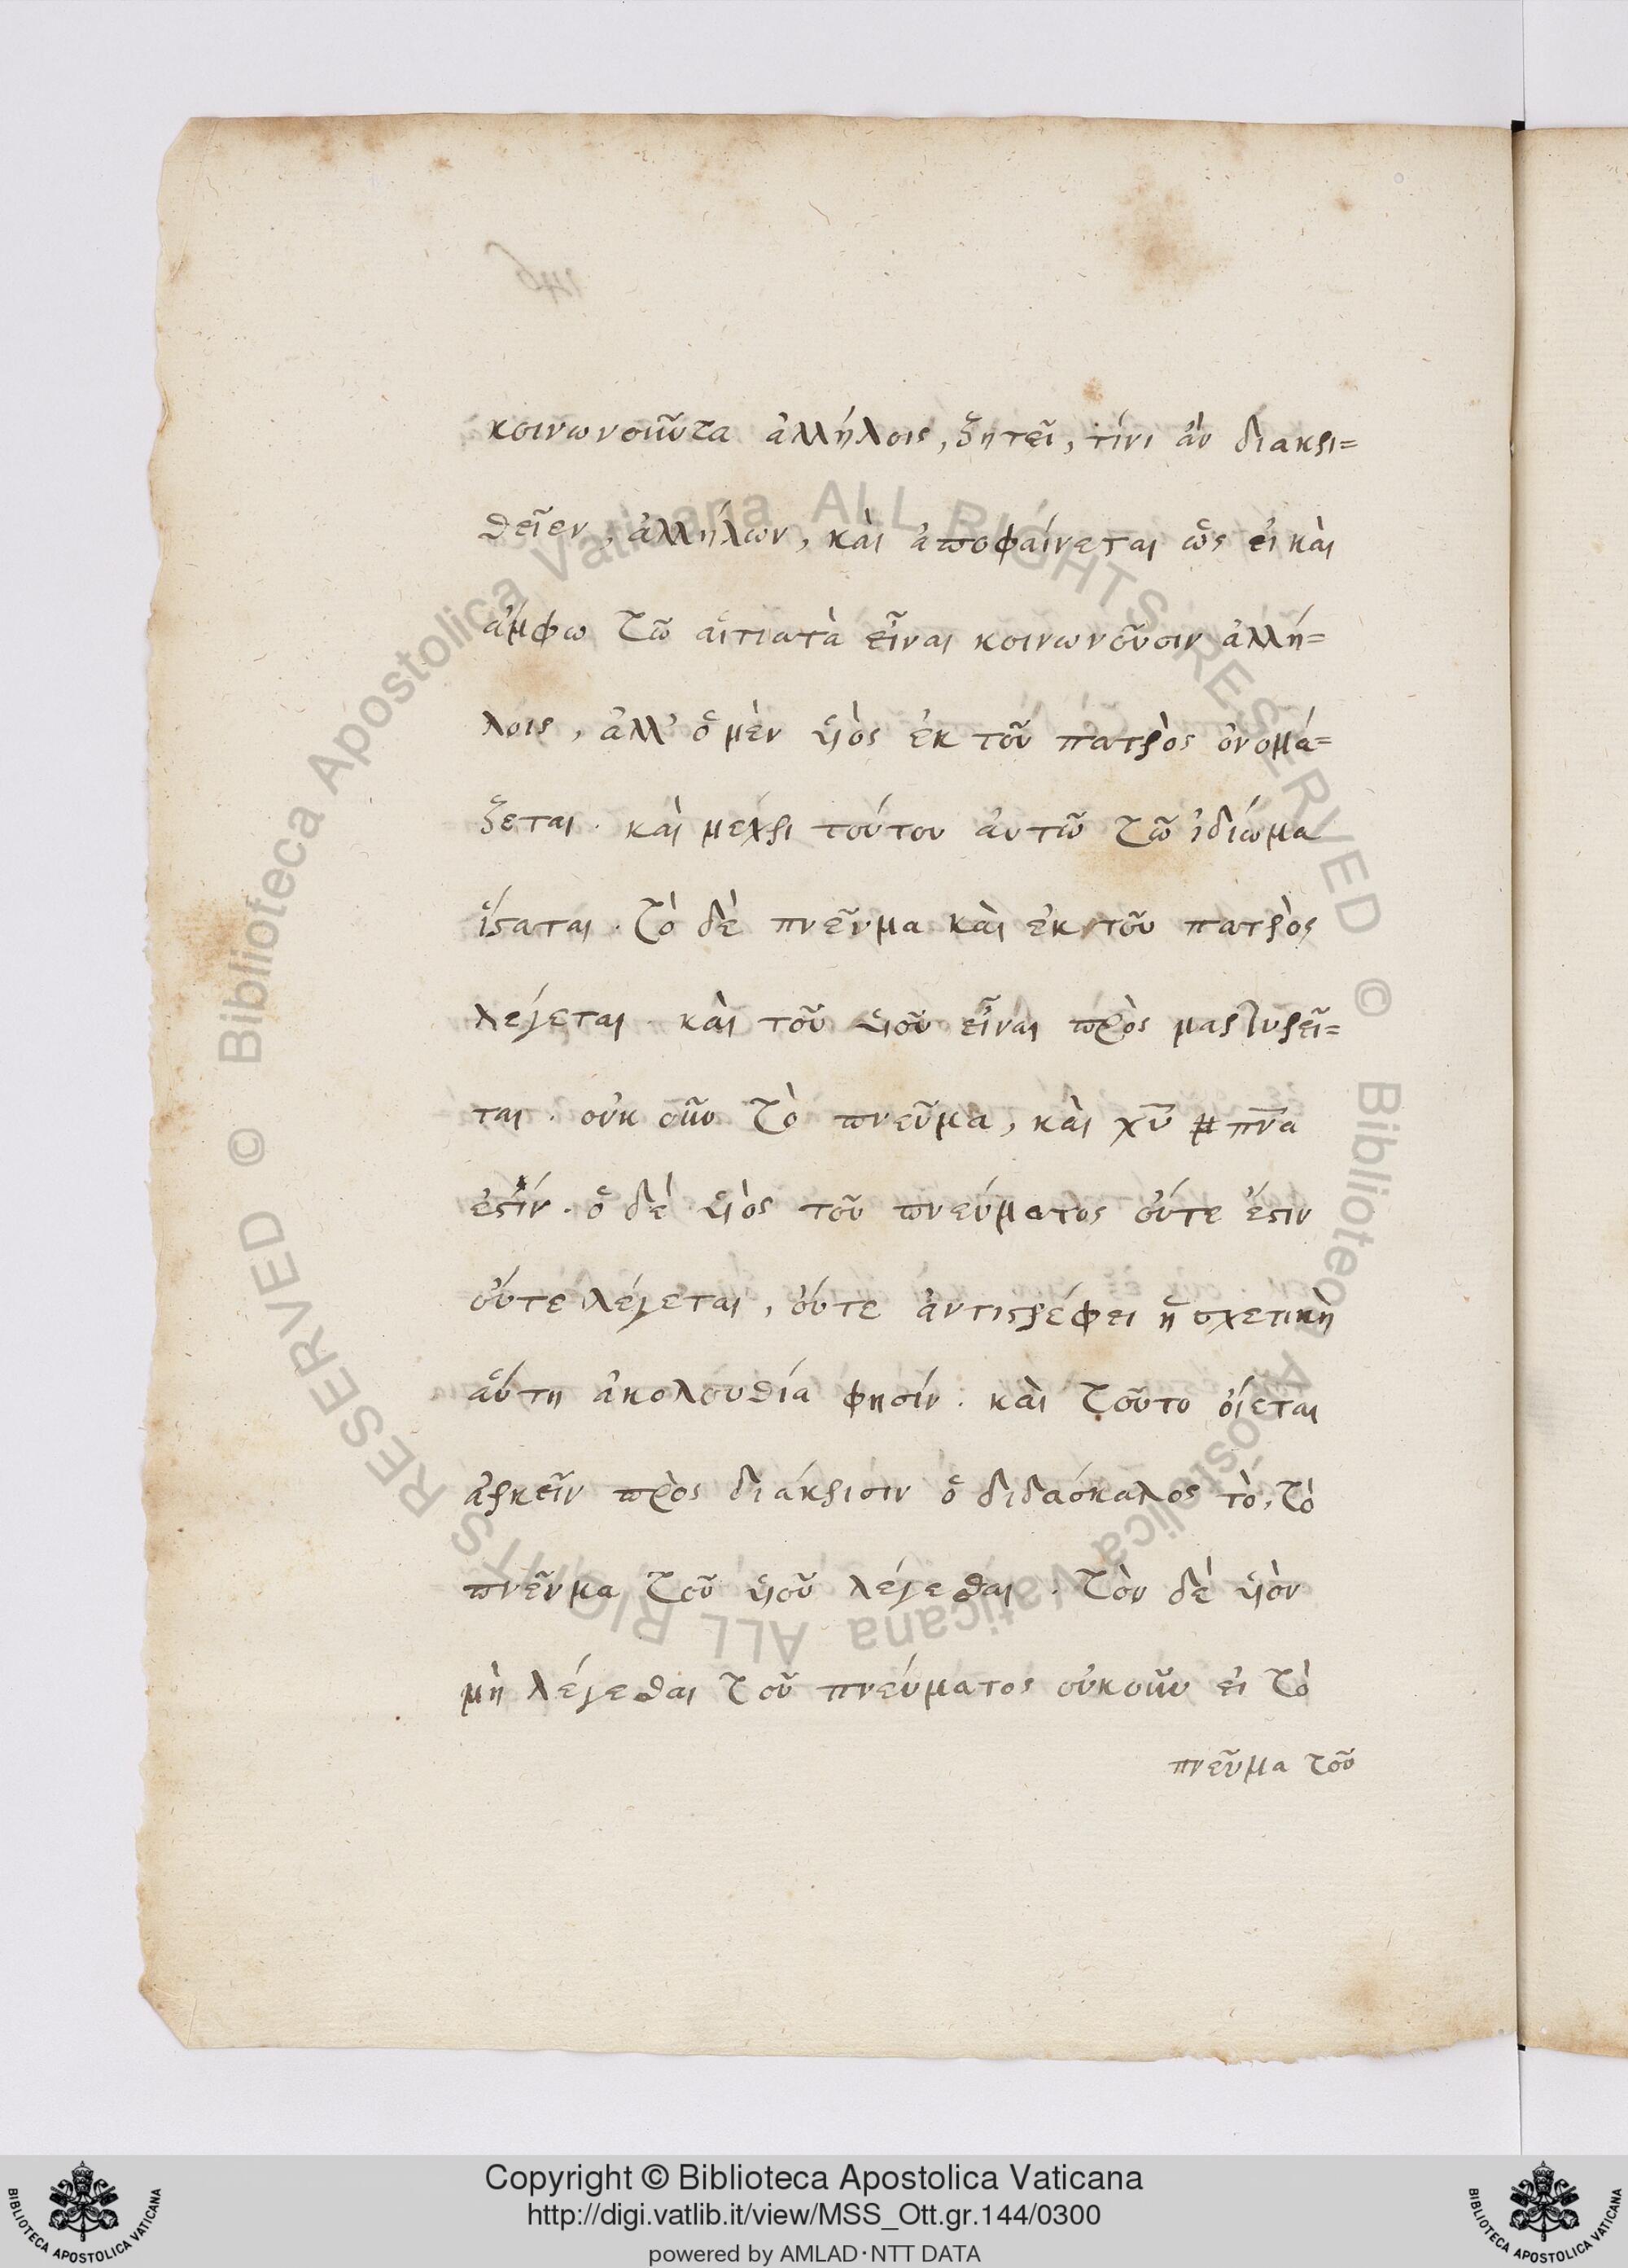 κοινωνοῦντα ἀλλήλοις, ζητεῖ, τίνι ἂν διακρι=
θεῖεν, ἀλλήλων, καὶ ἀποφαίνεται ὡς εἰ καὶ
ἄμφω τῶ αἰτιατὰ εἶναι κοινωνοῦσιν ἀλλή=
λοις, ἀλλ' ὁ μὲν ὑιὸς ἐκ τοῦ πατρὸς ὀνομά=
ζεται. καὶ μέχρι τούτου αὐτῶ τῶ ἰδίωμα
ἵσταται. τὸ δὲ πνεῦμα καὶ ἐκ τοῦ πατρὸς
λέγεται καὶ τοῦ ὑιοῦ εἶναι πρὸς μαρτυρεῖ=
ται. οὐκ οῦν τὸ πνεῦμα, καὶ χῦ # πν̅α
ἐστίν. ὁ δέ ὑιὸς τοῦ πνεύματος οὔτε ἔστιν
οὔτε λέγεται, οὔτε ἀντιστρέφει ἡ σχετικὴ
αὕτη ἀκολουθία φησίν. καὶ τοῦτο οἴεται
ἀρκεῖν πρὸς διάκρισιν ὁ διδάσκαλος τὸ, τὸ
πνεῦμα τοῦ ὑιοῦ λέγεσθαι. τὸν δέ ὑιὸν
μὴ λέγεσθαι τοῦ πνεύματος οὐκοῦν εἰ τὸ
πνεῦμα τοῦ
146
© Biblioteca Apostolica Vaticana ALL RIGHTS RESERVED
© Biblioteca Apostolica Vaticana ALL RIGHTS RESERVED
Copyright © Biblioteca Apostolica Vaticana
http://digi.vatlib.it/view/MSS_Ott.gr.144/0300
powered by AMLAD·NTT DATA
BIBLIOTECA APOSTOLICA VATICANA
BIBLIOTECA APOSTOLICA VATICANA